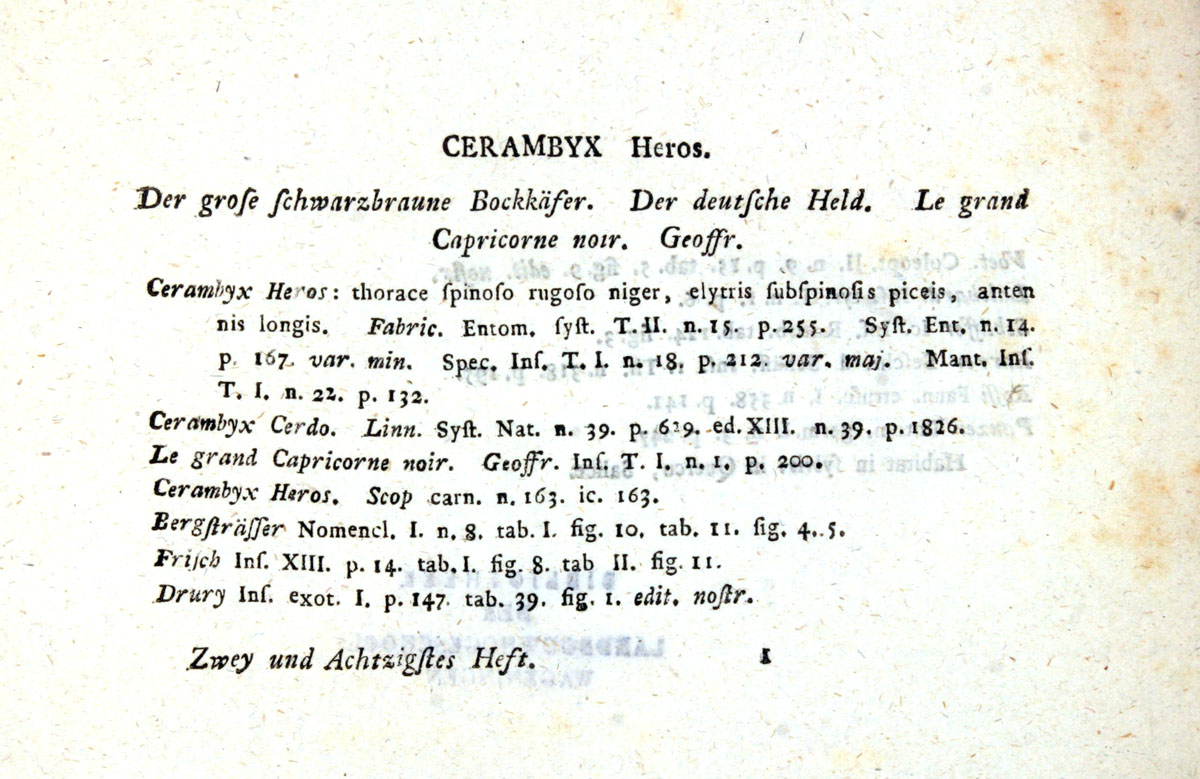 CERAMBYX Heros.
Der groſe ſchwarzbraune Bockkäfer. Der deutſche Held. Le grand
Capricorne noır. Geoffr.
Cerambyx Heros: thorace ſpinoſo rugoſo niger, elytris ſubſpinoſis piceis, anten
nis longis. Fabric. Entom. ſyſt. T. II. n. 15. p. 255. Syſt. Ent. n. 14.
p. 167. var. min. Spec. Inſ. T. I. n. 18. p. 212. var. maj. Mant. Inſ.
T. I. n. 22. p. 132.
Cerambyx Cerdo. Linn. Syſt. Nat. n. 39. p. 629. ed. XIII. n. 39. p. 1826.
Le grand Capricorne noir. Geoffr. Inſ. T. I. n. 1. p. 200.
Cerambyx Heros. Scop carn. n. 163. ic. 163.
Bergſträſſer Nomencl. I. n. 8. tab. I. fig. 10. tab. 11. fig. 4. 5.
Friſch Inſ. XIII. p. 14. tab. I. fig. 8. tab II. fig. 11.
Drury Inſ. exot. I. p. 147. tab. 39. fig. 1. edit. noſtr.
Zwey und Achtzigſtes Heft. 1